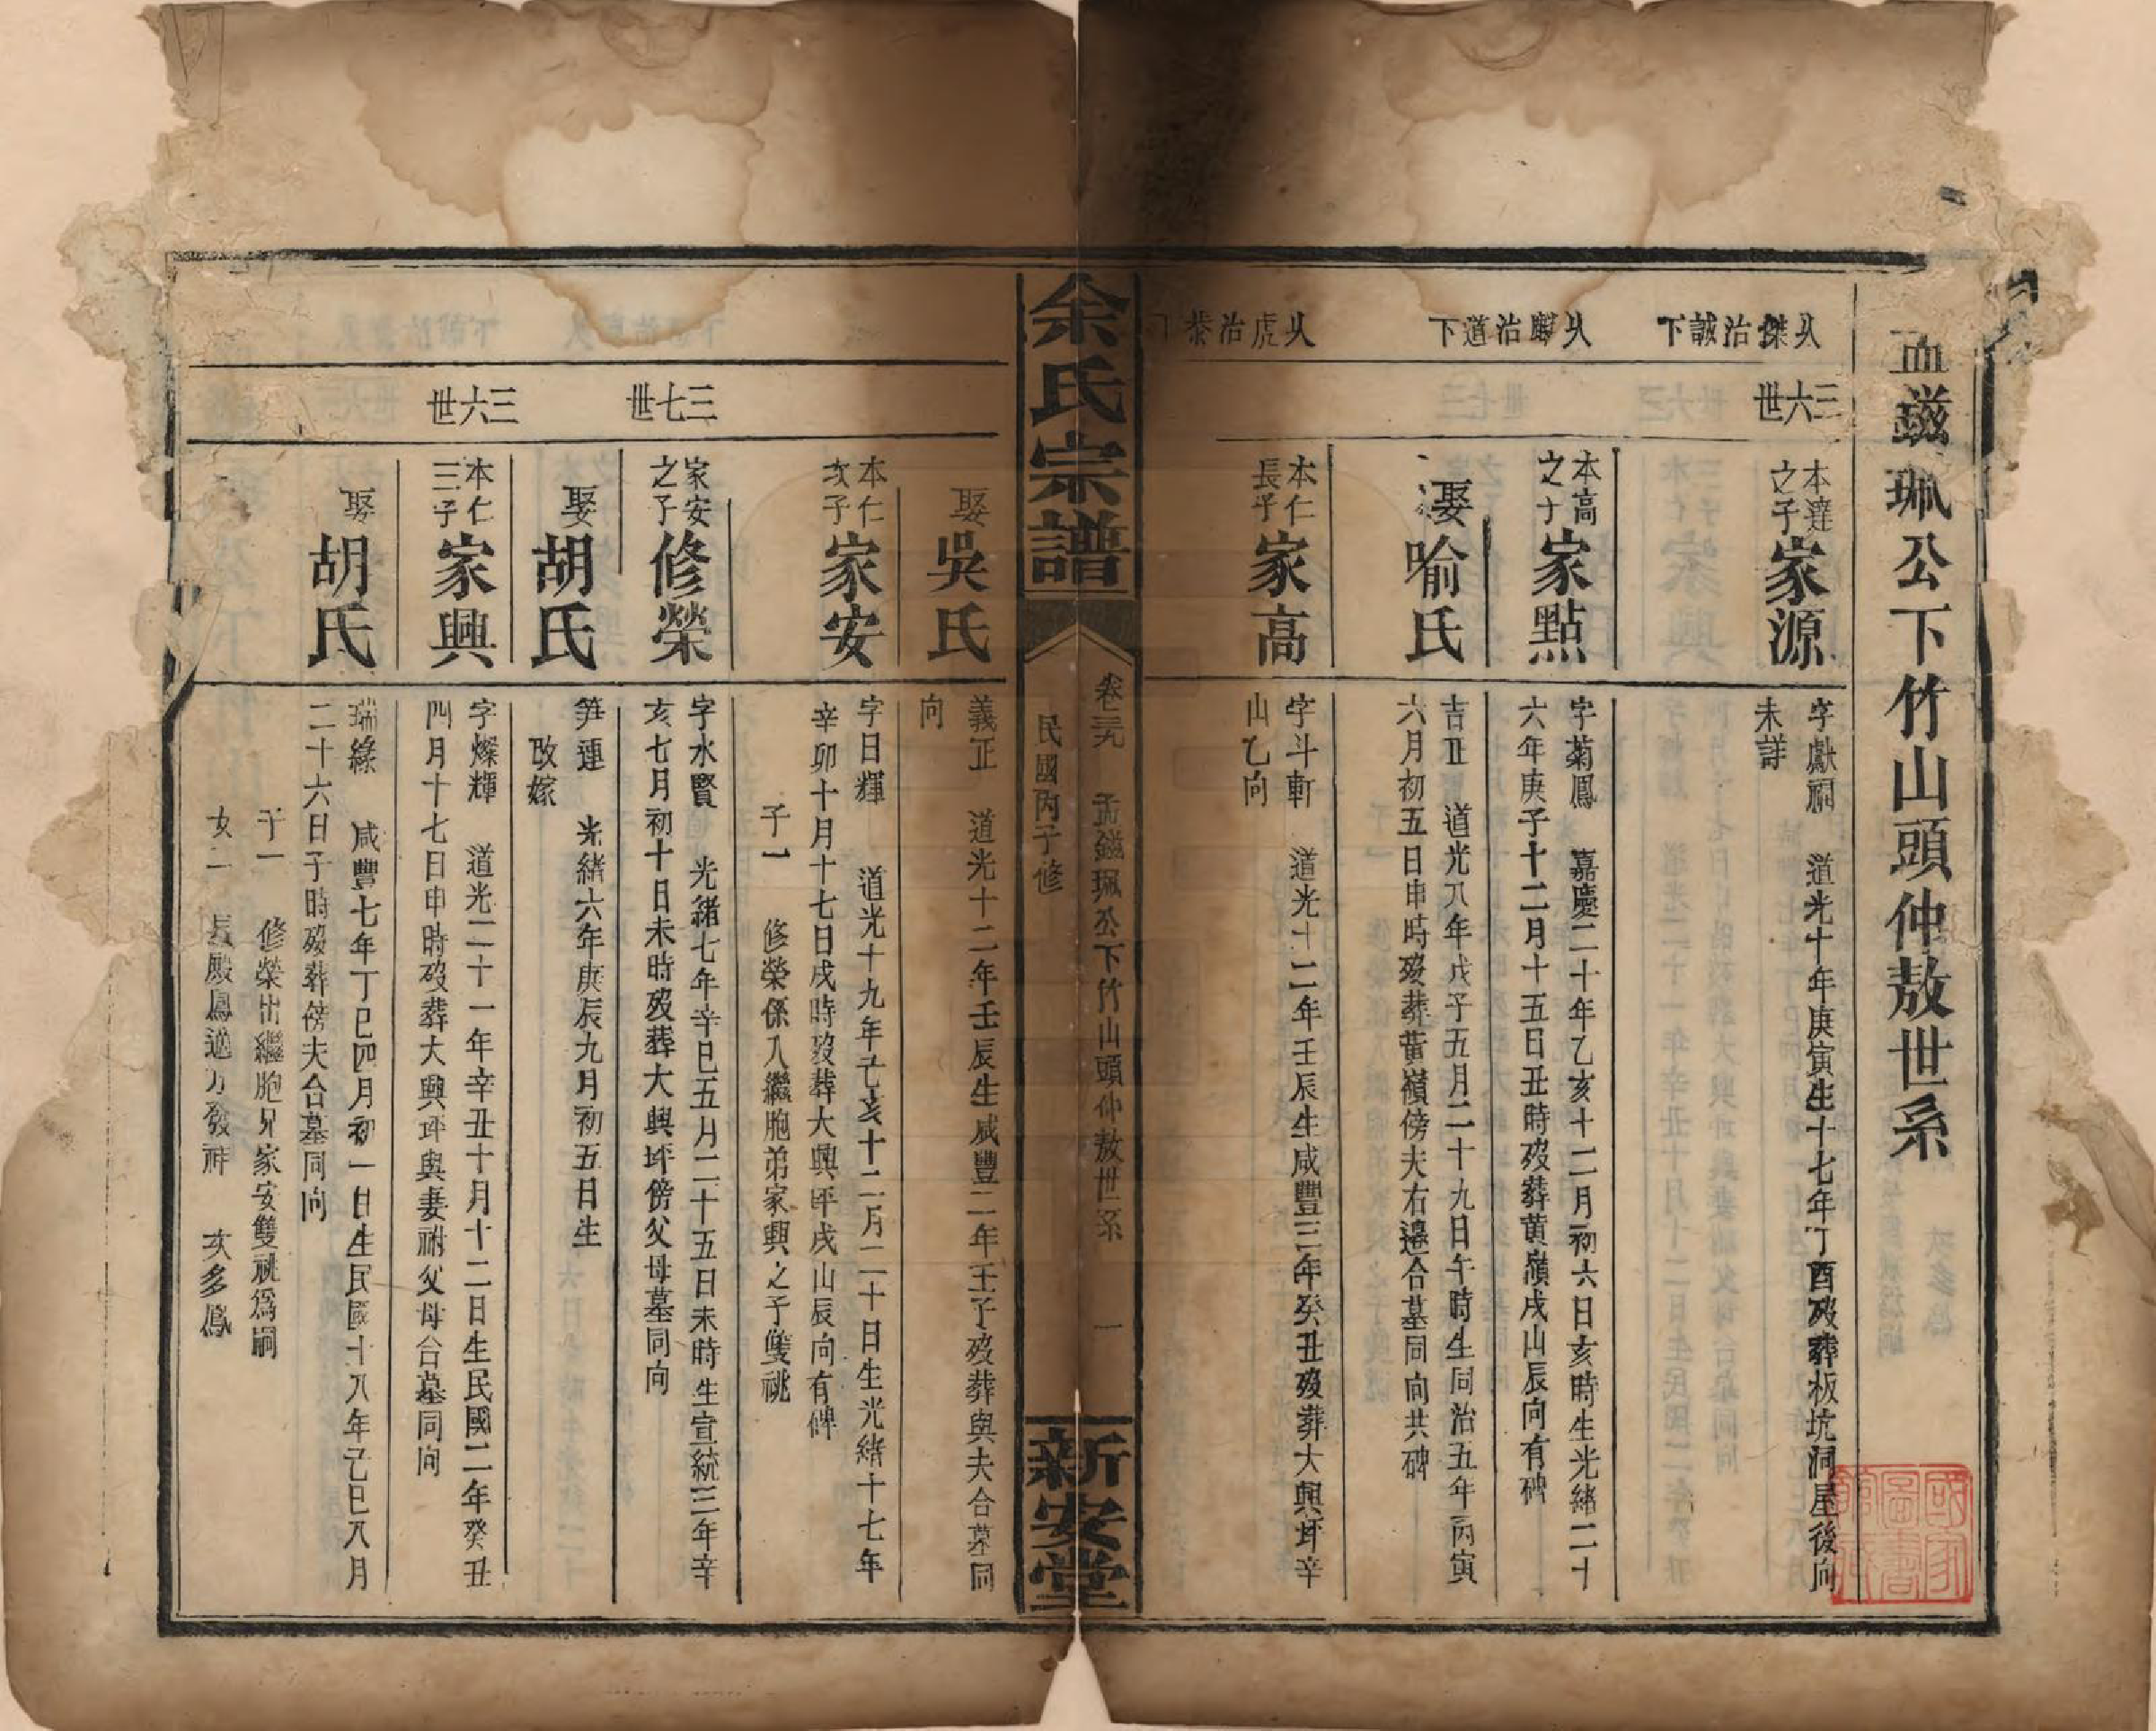 孟鎡珮公下竹山頭仲敖世系
攸傑治誠下
攸麟治道下
攸虎治恭下
三六世
本達之子 家源
字獻嗣 道光十年庚寅生十七年丁酉歿葬板坑洞屋後向
未詳
本高之子 家點
字菊鳳 嘉慶二十年乙亥十二月初六日亥時生光緒二十
六年庚子十二月十五日丑時歿葬黃嶺戌山辰向有碑
娶 喻氏
吉正 道光八年戊子五月二十九日午時生同治五年丙寅
六月初五日申時歿葬黃嶺傍夫右邊合墓同向共碑
本仁長子 家高
字斗軒 道光十二年壬辰生咸豐三年癸丑歿葬大興坪辛
山乙向
余氏宗譜
卷三九 孟鎡珮公下竹山頭仲敖世系 一
民國丙子修
新安堂
娶 吳氏
義正 道光十二年壬辰生咸豐二年壬子歿葬與夫合墓同
向
本仁次子 家安
字日輝 道光十九年己亥十二月二十日生光緒十七年
辛卯十月十七日戌時歿葬大興坪戌山辰向有碑
子一 修榮係入繼胞弟家興之子雙祧
三七世
家安之子 修榮
字水賢 光緒七年辛巳五月二十五日未時生宣統三年辛
亥七月初十日未時歿葬大興坪傍父母墓同向
娶 胡氏
笋連 光緒六年庚辰九月初五日生
改嫁
三六世
本仁三子 家興
字燦輝 道光二十一年辛丑十月十二日生民國二年癸丑
四月十七日申時歿葬大興坪與妻祔父母合墓同向
娶 胡氏
瑞綠 咸豐七年丁巳四月初一日生民國十八年己巳八月
二十六日子時歿葬傍夫合墓同向
子一 修榮出繼胞兄家安雙祧爲嗣
女二 長殿鳳適方發祥 次多鳳